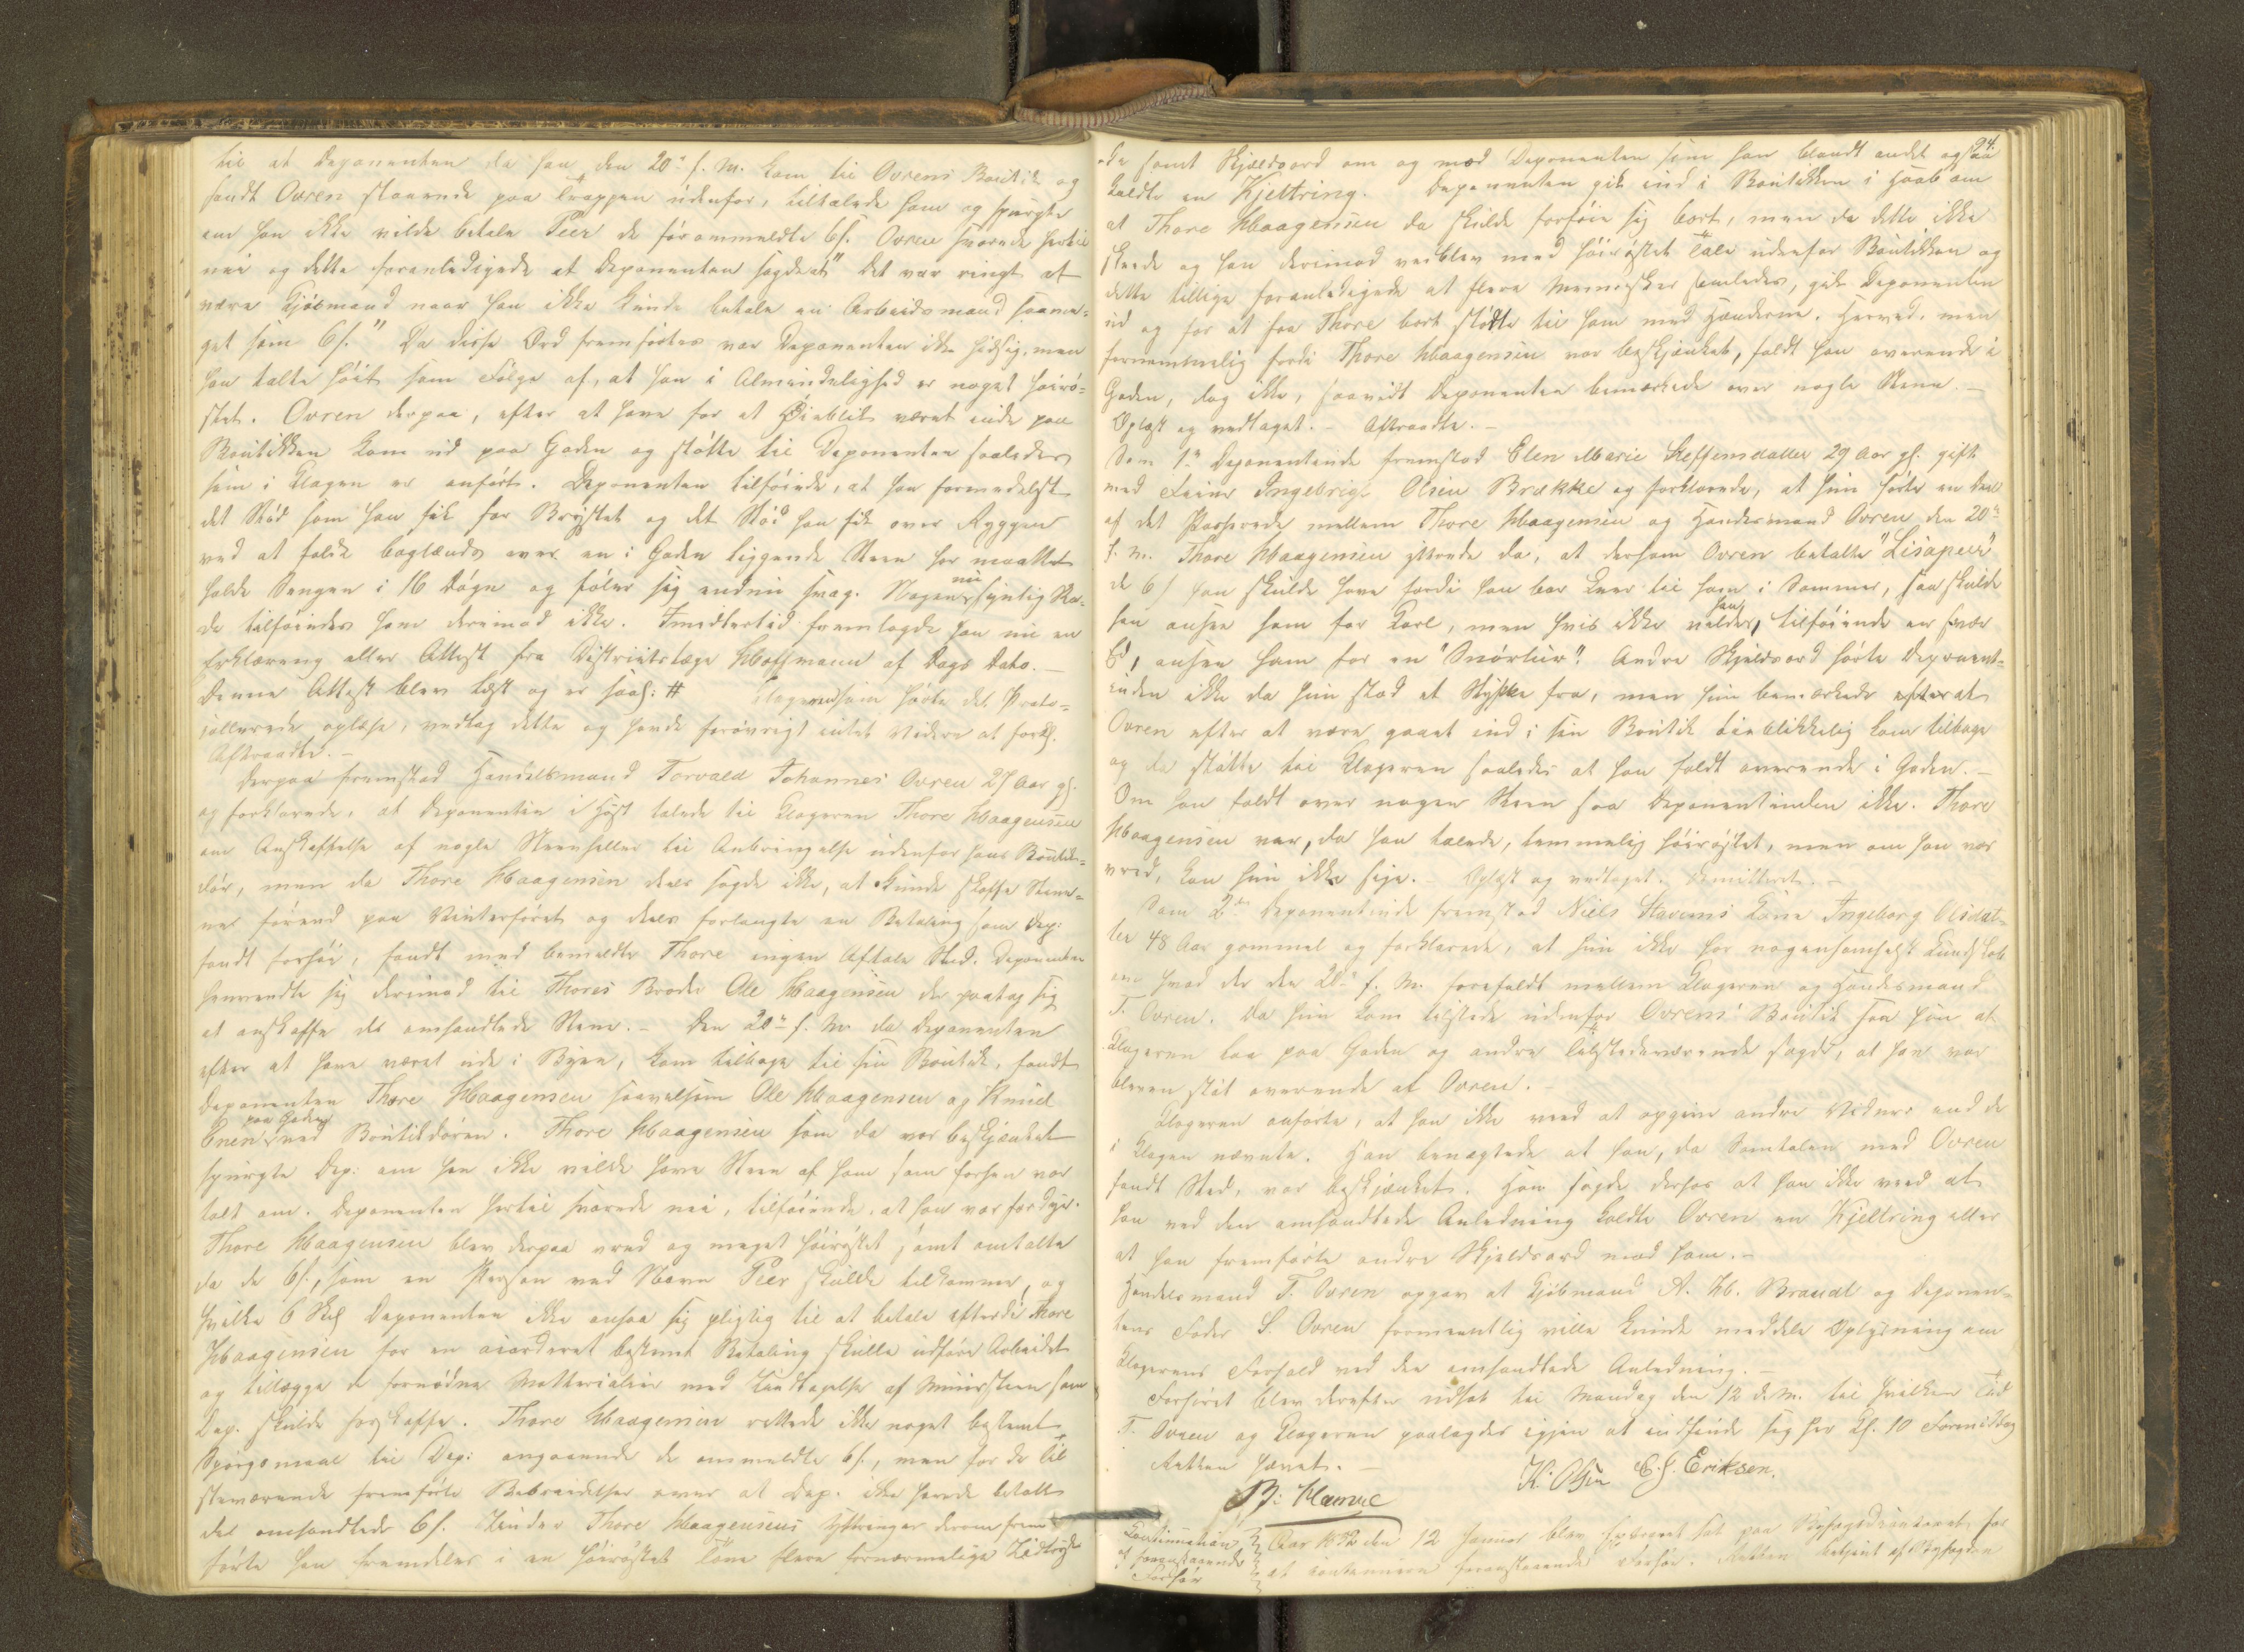 til at Deponenten da han den 20de f. M. kom til Ovrens Boutik og
fandt Ovren staaende paa Trappen udenfor, tiltalede ham og spurgte
om han ikke vilde betale Peer de førommeldte 6ſ. Ovren svarede hertil
nei og dette foranledigede at Deponenten sagde at "Det var ringt at
være Kjøbmand naar han ikke kunde betale en Arbeidsmand saame-
get som 6ſ." Da disse Ord fremførtes var Deponenten ikke hidsig, men
han talte høit som Følge af, at han i Almindelighed er noget høirø-
stet. Ovren derpaa, efter at have for et Øieblik været inde paa
Boutikken kom ud paa Gaden og stødte til Deponenten saaledes
som i Klagen er anført. Deponenten tilføiede, at han formedelst
det Stød som han fik for Brystet og det Stød han fik over Ryggen
ved at falde baglænds over en i Gaden liggende Steen har maattet
holde Sengen i 16 Døgn og føler sig endnu svag. Nogen nu synlig Ska-
de tilføiedes ham derimod ikke. Imidlertid fremlagde han nu en
Erklæring eller Attest fra Distriktslæge Hoffmann af Dags Dato. —
Denne Attest blev læst og er saal: # Klageren som hørte det Proto-
collerede oplæse, vedtog dette og havde forøvrigt intet Videre at forkl.
Aftraadte. —
Derpaa fremstod Handelsmand Torvald Johannes Ovren 27 Aar gl.
og forklarede, at Deponenten i Høst talede til Klageren Thore Haagensen
om Anskaffelse af nogle Steenheller til Anbringelse udenfor hans Boutik-
dør, men da Thore Haagensen deels sagde ikke, at kunde skaffe Stene-
ne førend paa Vinterføret og deels forlangte en Betaling som Dep:
fandt forhøi, fandt med bemeldte Thore ingen Aftale Sted. Deponenten
henvendte sig derimod til Thores Broder Ole Haagensen der paatog sig
at anskaffe de omhandlede Stene. — Den 20de f. M. da Deponenten
efter at have været ude i Byen, kom tilbage til sin Boutik, fandt
Deponenten Thore Haagensen saavelsom Ole Haagensen og Knud
Enen paa Gaden ved Boutikdøren. Thore Haagensen som da var beskjænket
spurgte Dep: om han ikke vilde have Steen af ham som forhen var
talt om. Deponenten hertil svarede nei, tilføiende, at han var for dyr.
Thore Haagensen blev derpaa vred og meget høirøstet, samt omtalte
da de 6ſ, som en Person ved Navn Peer skulde tilkomme, og
hvilke 6 Skſ Deponenten ikke ansaa sig pligtig til at betale efterdi Thore
Haagensen for en accorderet bestemt Betaling skulle udføre Arbeidet
og tillægge de fornødne Matterialier med Undtagelse af Muursteen som
Dep. skulde forskaffe. Thore Haagensen rettede ikke noget bestemt
Spørgsmaal til Dep: angaaende de ommeldte 6ſ., men for de Til
stæværende fremførte Bebreidelser over at Dep. ikke havde betalt
det omhandlede 6ſ. Under Thore Haagensens Yttringer derom frem-
førte han fremdeles i en høirøstet Tone flere fornærmelige Udtryk
94.
de samt Skjældsord om og mod Deponenten som han blandt andet ogsaa
kaldte en Kjeltring. Deponenten gik ind i Boutikken i Haab om
at Thore Haagensen da skulde forføie sig bort, men da dette ikke
skede og han derimod vedblev med høirøstet Tale udenfor Boutikken og
dette tillige foranledigede at flere Mennesker samledes, gik Deponenten
ud og for at faa Thore bort stødte til ham med Hænderne. Herved, men
fornemmelig fordi Thore Haagensen var beskjænket, faldt han overende i
Gaden, dog ikke, saavidt Deponenten bemærkede over nogle Stene. —
Oplæst og vedtaget. — Aftraadte. —
Som 1ste Deponentinde fremstod Elen Marie Steffensdatter 29 Aar gl. gift
med Feier Ingebrigt Olsen Brække og forklarede, at hun hørte en Deel
af det Passerede mellem Thore Haagensen og Handelsmand Ovren den 20de
f. M. Thore Haagensen yttrede da, at dersom Ovren betalte "Lisapeer"
de 6ſ han skulde have fordi han bar Leer til ham i Sommer, saa skulde
han ansee ham for Karl, men hvis ikke han vilde, tilføiende en svær
Ed, ansee ham for en "Snørlur". Andre Skjældsord hørte Deponent-
inden ikke da hun stod et Stykke fra, men hun bemærkede efterat
Ovren efter at være gaaet ind i sin Boutik øieblikkelig kom tilbage
og da stødte til Klageren saaledes at han faldt overende i Gaden. —
Om han faldt over nogen Steen saa Deponentinden ikke. Thore
Haagensen var, da han talede, temmelig høirøstet, men om han var
vred, kan hun ikke sige. — Oplæst og vedtaget. Demitteret. —
Som 2den Deponentinde fremstod Niels Stavems Kone Ingeborg Olsdat-
ter 48 Aar gammel og forklarede, at hun ikke har nogensomhelst Kundskab
om hvad der den 20de f. M. forefaldt mellem Klageren og Handelsmand
T. Ovren. Da hun kom tilstede udenfor Ovrens Boutik saa hun at
Klageren laa paa Gaden og andre Tilstedeværende sagde, at han var
bleven stødt overende af Ovren. —
Klageren anførte, at han ikke veed at opgive andre Vidner end de
i Klagen nævnte. Han benægtede at han, da Samtalen med Ovren
fandt Sted, var beskjænket. Han sagde derhos at han ikke veed at
han ved den omhandlede Anledning kaldte Ovren en Kjeltring eller
at han fremførte andre Skjældsord mod ham. —
Handelsmand T. Ovren opgav at Kjøbmand A. H. Brandt og Deponen-
tens Fader S. Ovren formeentlig ville kunde meddele Oplysning om
Klagerens Forhold ved den omhandlede Anledning. —
Forhøret blev derefter udsat til Mandag den 12 d. M. til hvilken Tid
T. Ovren og Klageren paalagdes igjen at indfinde sig her Kl. 10 Formiddag
Retten hævet. —
H. Olsen E. J. Eriksen.
Continuation
af foranstaaende
Forhør
Aar 1852 den 12 Januar blev Extraret sat paa Byfogedcontoret for
at continuere foranstaaende Forhør. Retten betjent af Byfogden